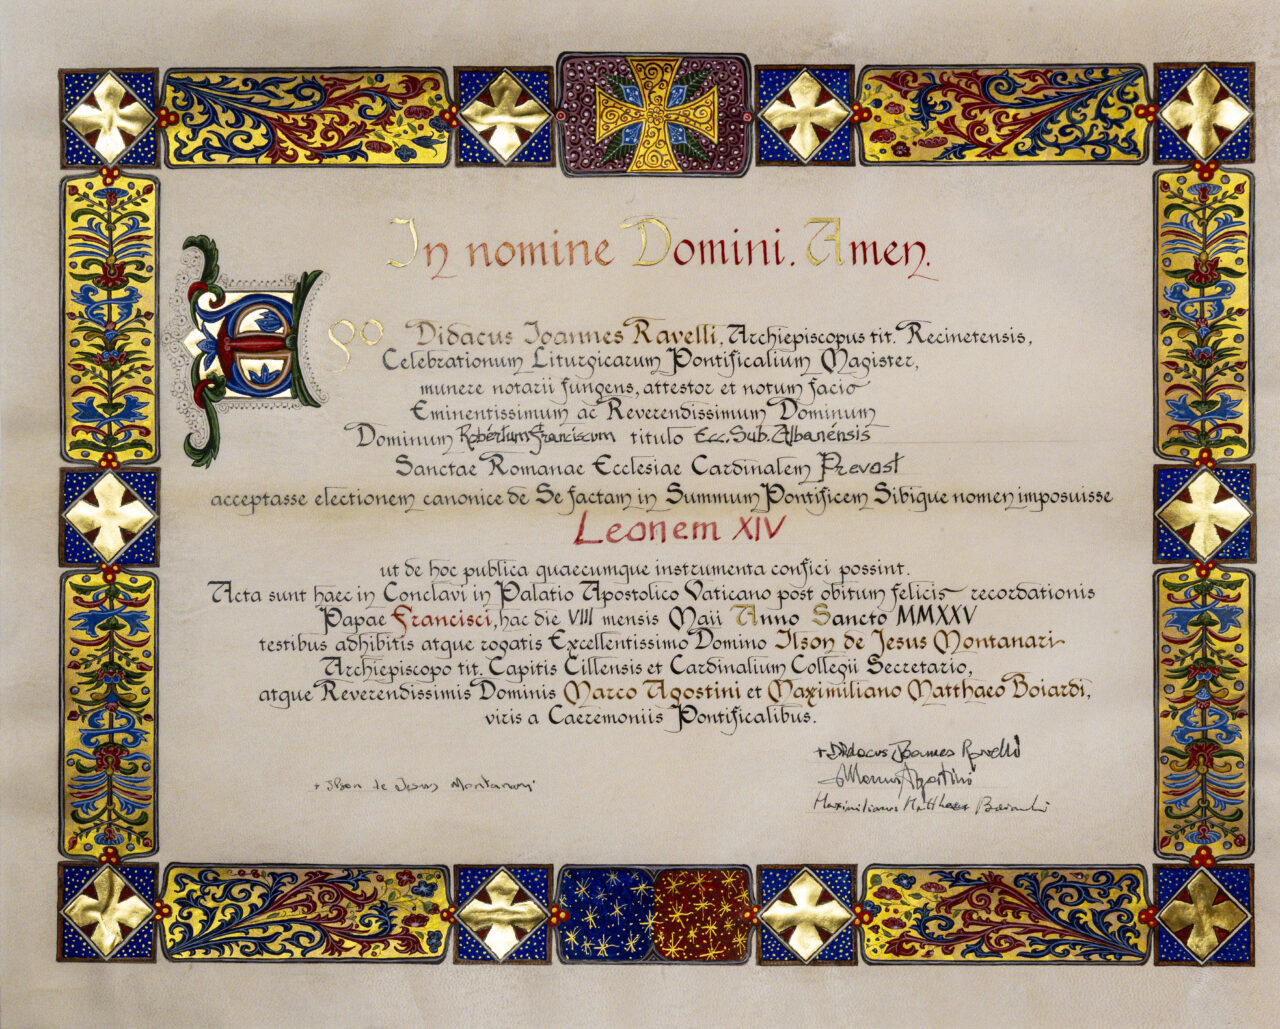 In nomine Domini. Amen.
Ego Didacus Ioannes Ravelli, Archiepiscopus tit. Recinetensis,
Celebrationum Liturgicarum Pontificalium Magister,
munere notarii fungens, attestor et notum facio
Eminentissimum ac Reverendissimum Dominum
Dominum Robértum Franciscum titulo Ecc. Sub. Albanénsis
Sanctae Romanae Ecclesiae Cardinalem Prevost
acceptasse electionem canonice de Se factam in Summum Pontificem Sibique nomen imposuisse
Leonem XIV
ut de hoc publica quaecumque instrumenta confici possint.
Acta sunt haec in Conclavi in Palatio Apostolico Vaticano post obitum felicis recordationis
Papae Francisci, hac die VIII mensis Maii Anno Sancto MMXXV
testibus adhibitis atque rogatis Excellentissimo Domino Ilson de Jesus Montanari
Archiepiscopo tit. Capitis Cillensis et Cardinalium Collegii Secretario,
atque Reverendissimis Dominis Marco Agostini et Maximiliano Matthaeo Boiardi,
viris a Caeremoniis Pontificalibus.
+ Didacus Ioannes Ravelli
Marcus Agostini
+ Ilson de Jesus Montanari
Maximilianus Matthaeus Boiardi